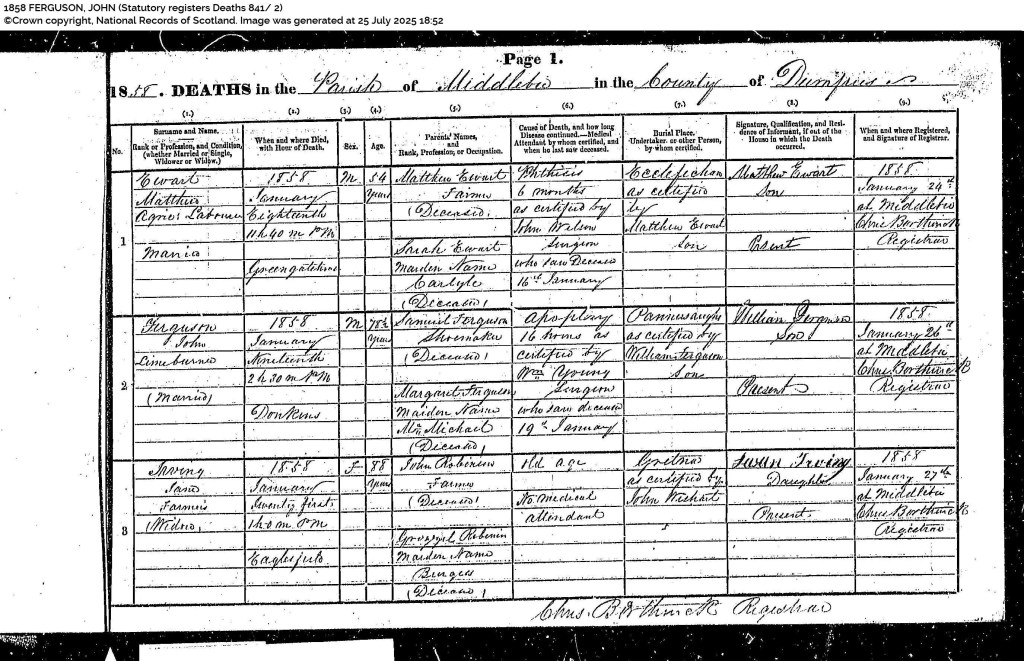 1858 FERGUSON, JOHN (Statutory registers Deaths 841/ 2)
©Crown copyright, National Records of Scotland. Image was generated at 25 July 2025 18:52
Page 1.
1858. DEATHS in the Parish of Middlebie in the County of Dumfries
(1.) (2.) (3.) (4.) (5.) (6.) (7.) (8.) (9.)
No.
Surname and Name.
Rank or Profession, and Condition,
(whether Married or Single,
Widower or Widow.)
When and where Died,
with Hour of Death.
Sex.
Age.
Parents' Names,
and
Rank, Profession, or Occupation.
Cause of Death, and how long
Disease continued.—Medical
Attendant by whom certified, and
when he last saw deceased.
Burial Place.
Undertaker or other Person,
by whom certified.
Signature, Qualification, and Resi-
dence of Informant, if out of the
House in which the Death
occurred.
When and where Registered,
and Signature of Registrar.
1
Ewart
Matthew
Married
1858
January
Eighteenth
11h 40 m P M
M
54
Years
Matthew Ewart
Farmer
(Deceased)
Sarah Ewart
Maiden Name
Carlyle
(Deceased)
Phthisis
6 months
as certified by
John Wilson
Surgeon
who saw Deceased
16th January
Ecclefechan
as certified
by
Matthew Ewart
Son
Matthew Ewart
Son
Present
1858.
January 24th
at Middlebie
Chrs Borthwick
Registrar
2
Ferguson
John
Limeburner
(Married)
1858
January
Nineteenth
2 h 30 m P M
Donkins
M
78½
Years
Samuel Ferguson
Shoemaker
(Deceased)
Margaret Ferguson
Maiden Name
McMichael
(Deceased)
Apoplexy
16 hours as
certified by
Wm Young
Surgeon
who saw deceased
19th January
Pannersaughs
as certified by
William Ferguson
Son
William Ferguson
Son
Present
1858.
January 26th
at Middlebie
Chrs Borthwick
Registrar
3
Irving
Jane
Farmers
(Widow)
1858
January
Twenty first
1h 0 m P M
Eaglesfield
F
88
Years
Robinson
Farmer
(Deceased)
Robinson
Maiden Name
Burgess
(Deceased)
Old age
No medical
attendant
Gretna
as certified by
John Wishart
Irving
Daughter
Present
1858
January 27th
at Middlebie
Chrs Borthwick
Registrar
Chrs. Borthwick Registrar